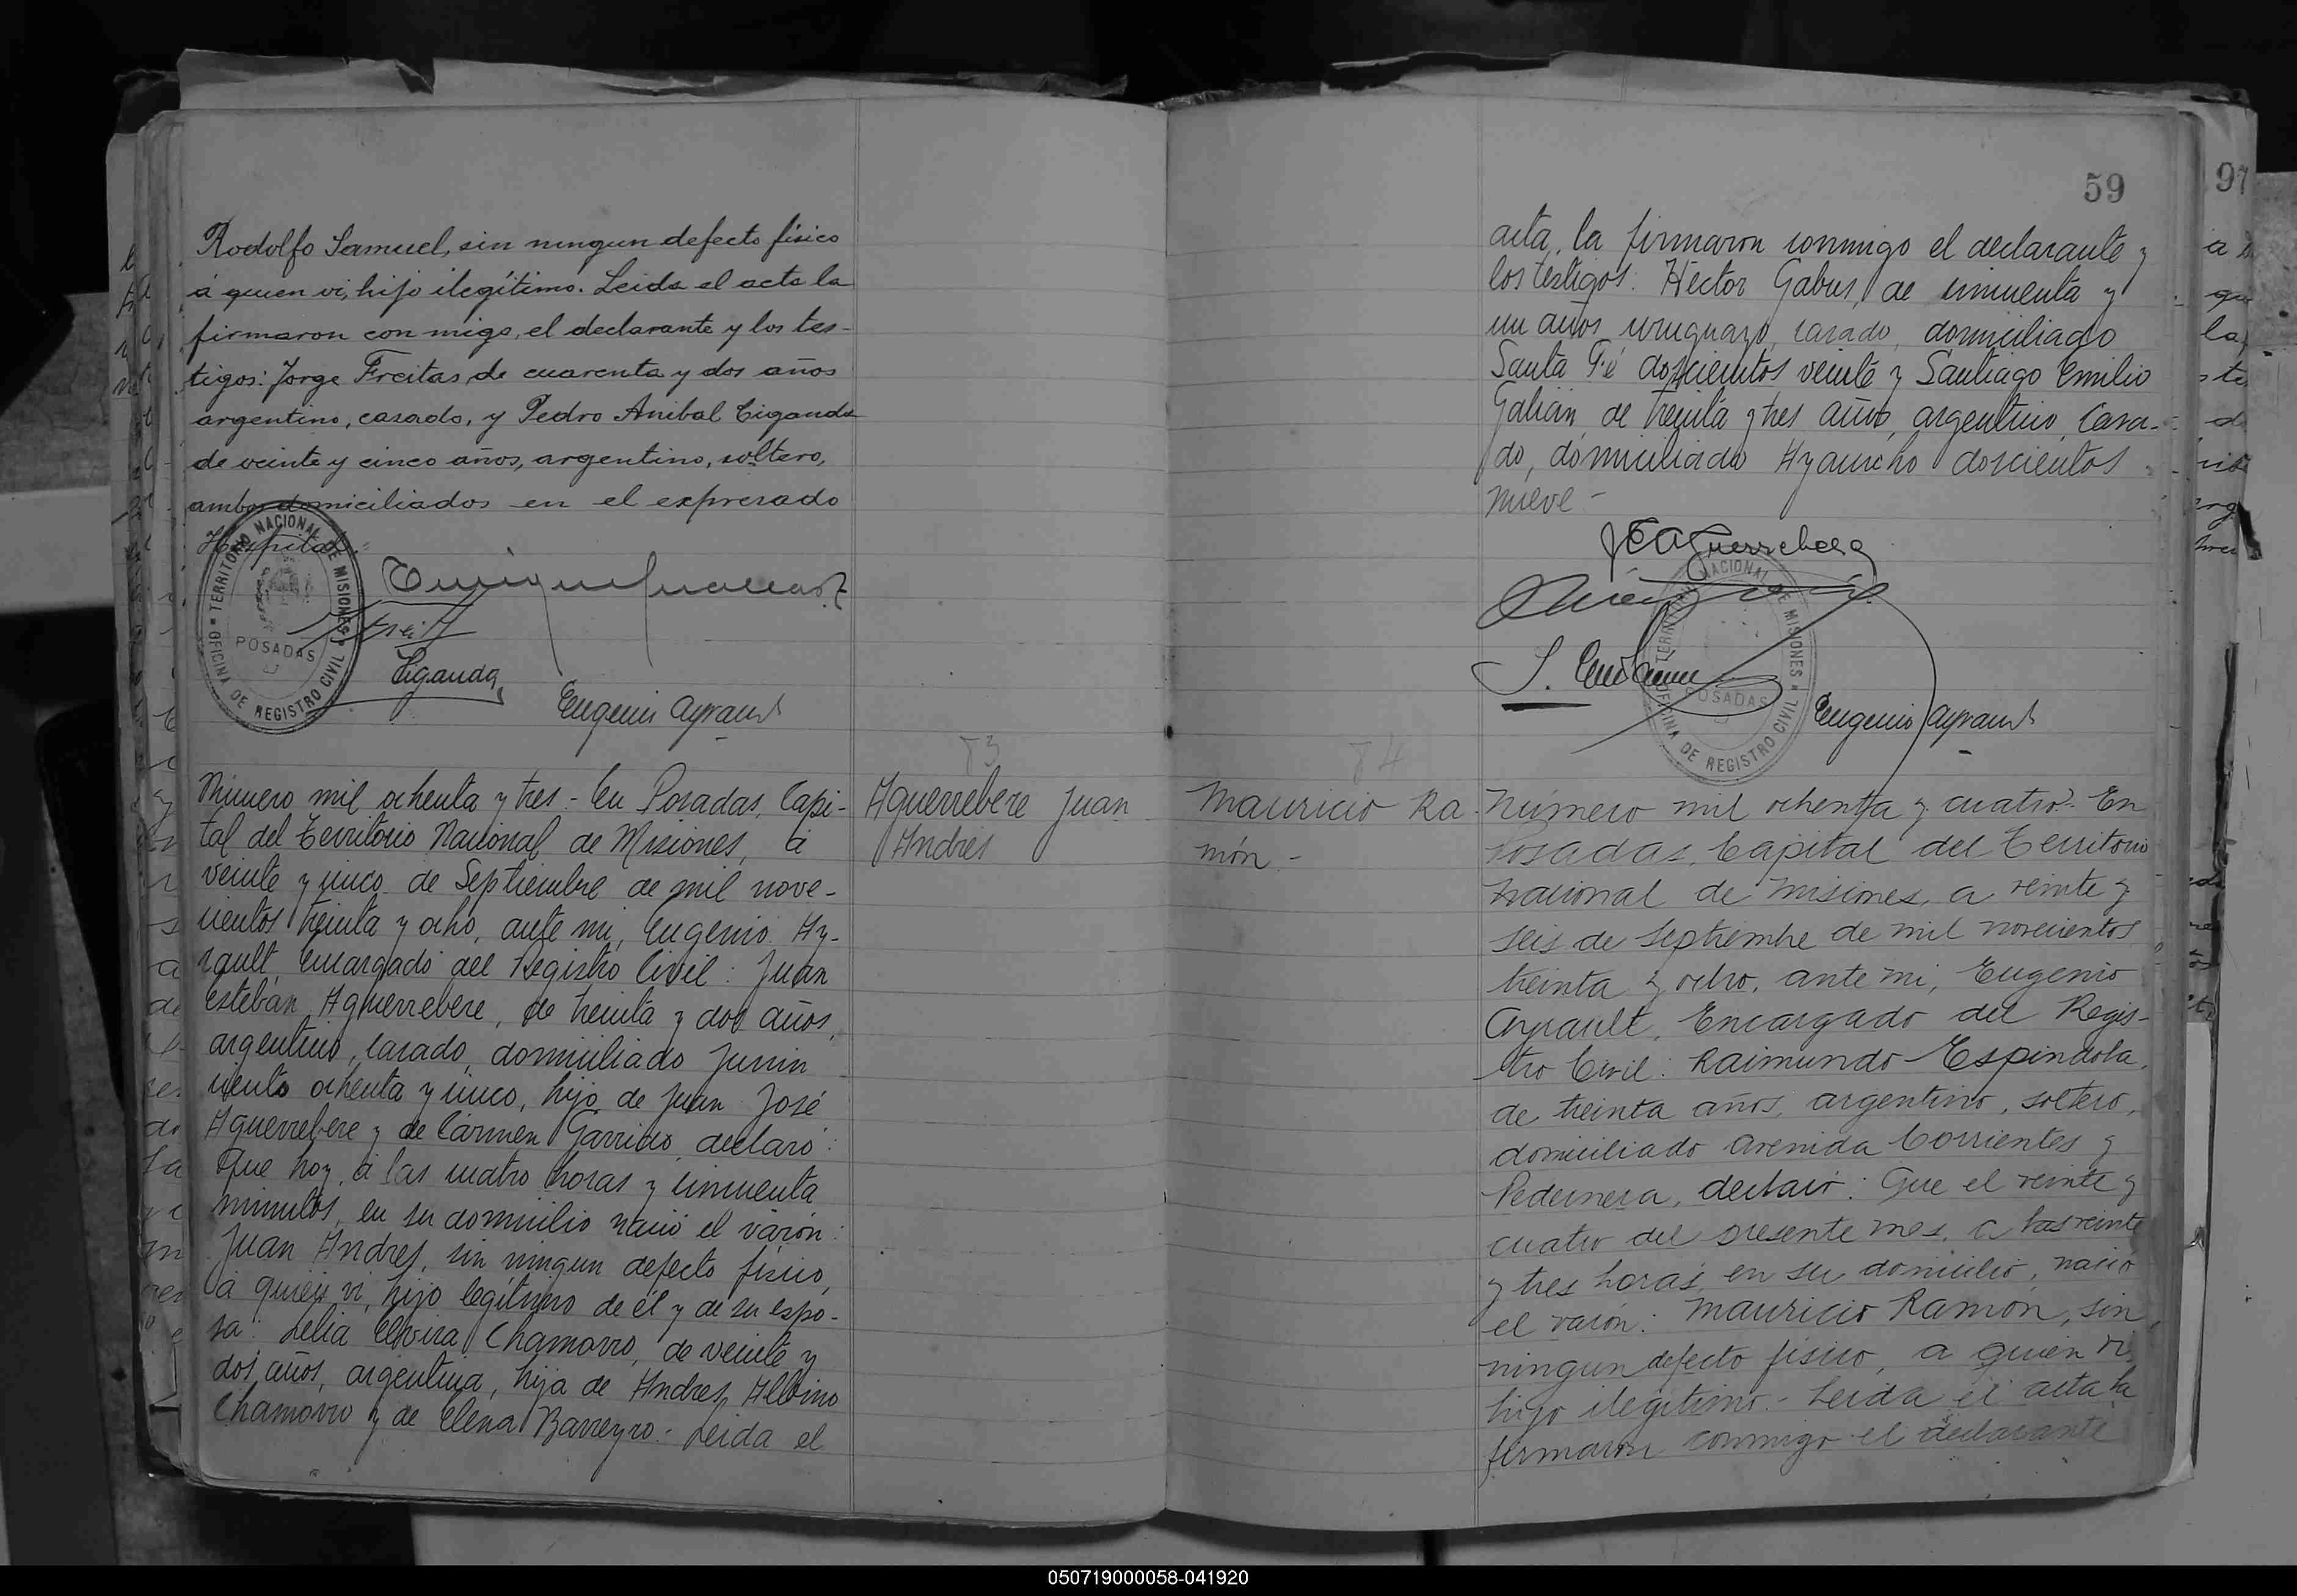 Rodolfo Samuel, sin ningun defecto físico
á quien vi, hijo ilegítimo. Leida el acta la
firmaron con migo, el declarante y los tes-
tigos: Jorge Freitas, de cuarenta y dos años
argentino, casado, y Pedro Anibal Ciganda
de veinte y cinco años, argentino, soltero,
ambos domiciliados en el expresado
Hospital.
TERRITORIO NACIONAL DE MISIONES
POSADAS
OFICINA DE REGISTRO CIVIL
Ciganda
Eugenio Ayrault
83
Número mil ochenta y tres.- En Posadas, Capi-
tal del Territorio Nacional de Misiones, á
veinte y cinco de Septiembre de mil nove-
cientos treinta y ocho, ante mi, Eugenio Ay-
rault, encargado del Registro Civil: Juan
Esteban Aguerrebere, de treinta y dos años,
argentino, casado, domiciliado Junin
ciento ochenta y cinco, hijo de Juan José
Aguerrebere y de Cármen Garrido, declaró:
Que hoy, á las cuatro horas y cincuenta
minutos, en su domicilio nació el varón:
Juan Andres, sin ningun defecto físico,
á quien vi, hijo legítimo de él y de su espo-
sa: Lelia Elvira Chamorro, de veinte y
dos años, argentina, hija de Andres Albino
Chamorro y de Elena Barreyro.- Leida el
Aguerrebere Juan
Andrés
59
97
acta, la firmaron conmigo el declarante y
los testigos: Héctor Gabus, de cincuenta y
un años uruguayo, casado, domiciliado
Santa Fé doscientos veinte y Santiago Emilio
Galián, de treinta y tres años, argentino, casa-
do, domiciliado Ayaucho doscientos
nueve -
JEAguerrebere
TERRITORIO NACIONAL DE MISIONES
POSADAS
OFICINA DE REGISTRO CIVIL
Eugenio Ayrault
84
Mauricio Ra-
món -
Número mil ochenta y cuatro.- En
Posadas, Capital del Territorio
Nacional de Misiones, a veinte y
seis de Septiembre de mil novecientos
treinta y ocho, ante mi, Eugenio
Ayrault, Encargado del Regis-
tro Civil: Raimundo Espindola,
de treinta años, argentino, soltero,
domiciliado Avenida Corrientes y
Pedernera, declaró: Que el veinte y
cuatro del presente mes, a las veinte
y tres horas, en su domicilio, nació
el varón: Mauricio Ramón, sin
ningun defecto físico, a quien vi,
hijo ilegítimo.- Leida el acta la
firmaron conmigo el declarante
050719000058-041920